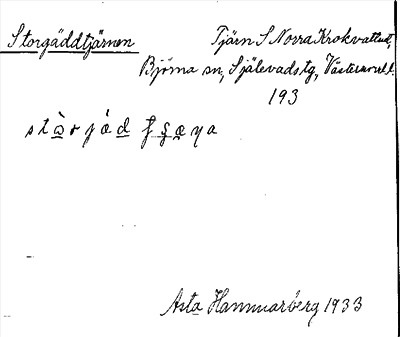 Storgäddtjärnen
Tjärn S Norra Krokvattnet,
Björna sn, Själevads tg, Västernorrl. l.
193
stὰrjǻd
Asta Hammarberg 1933